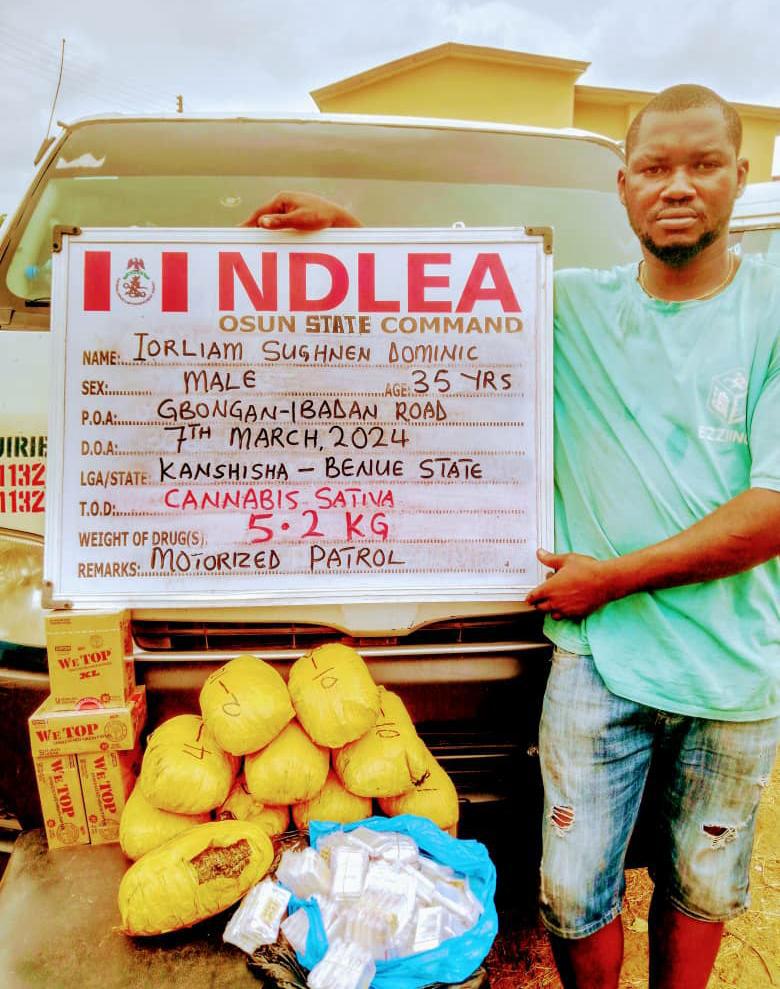 NDLEA
OSUN STATE COMMAND
NAME: IORLIAM SUGHNEN DOMINIC
SEX: MALE AGE: 35 YRS
P.O.A: GBONGAN-IBADAN ROAD
D.O.A: 7TH MARCH, 2024
LGA/STATE: KANSHISHA - BENUE STATE
T.O.D: CANNABIS SATIVA
WEIGHT OF DRUG(S): 5.2 KG
REMARKS: MOTORIZED PATROL
UIRIE
1132
1132
WE TOP
XL
WE TOP
WE TOP
WE TOP
10